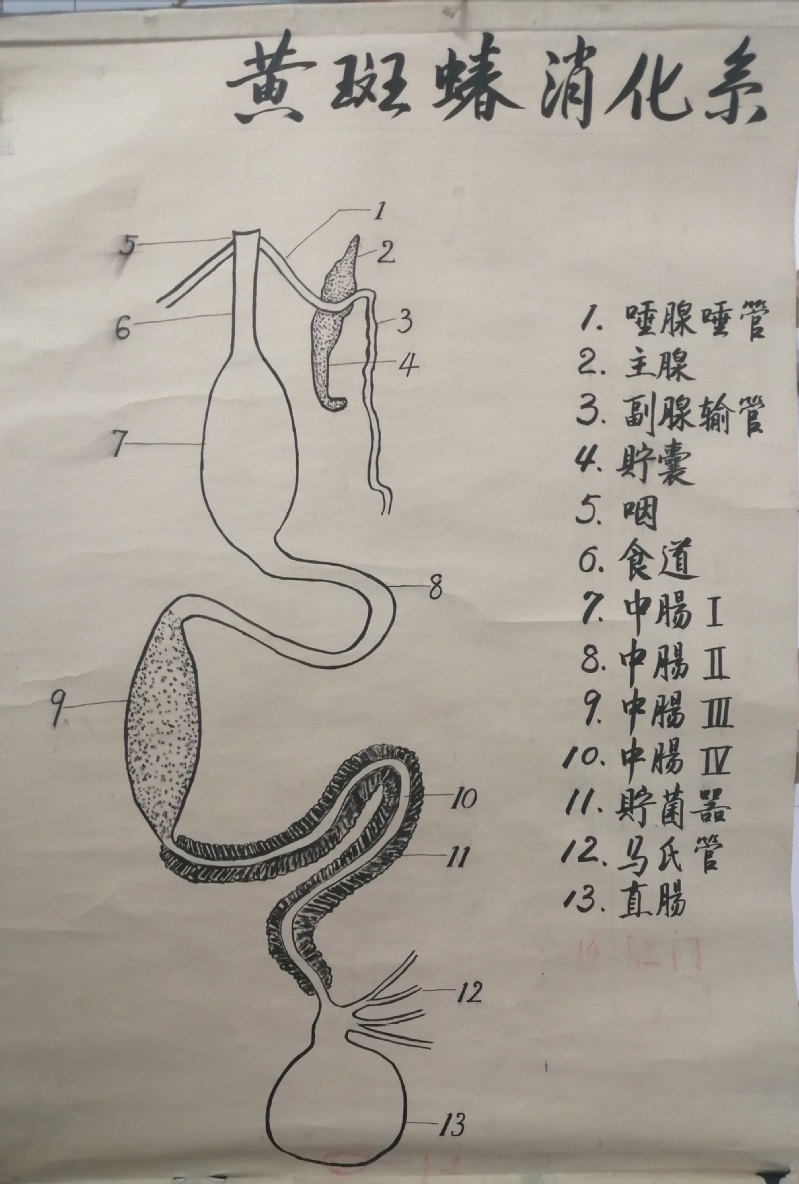 黄斑蝽消化系
1
5
2
6
3
4
7
8
9
10
11
12
13
1. 唾腺唾管
2. 主腺
3. 副腺输管
4. 貯囊
5. 咽
6. 食道
7. 中腸 I
8. 中腸 II
9. 中腸 III
10. 中腸 IV
11. 貯菌器
12. 马氏管
13. 直腸